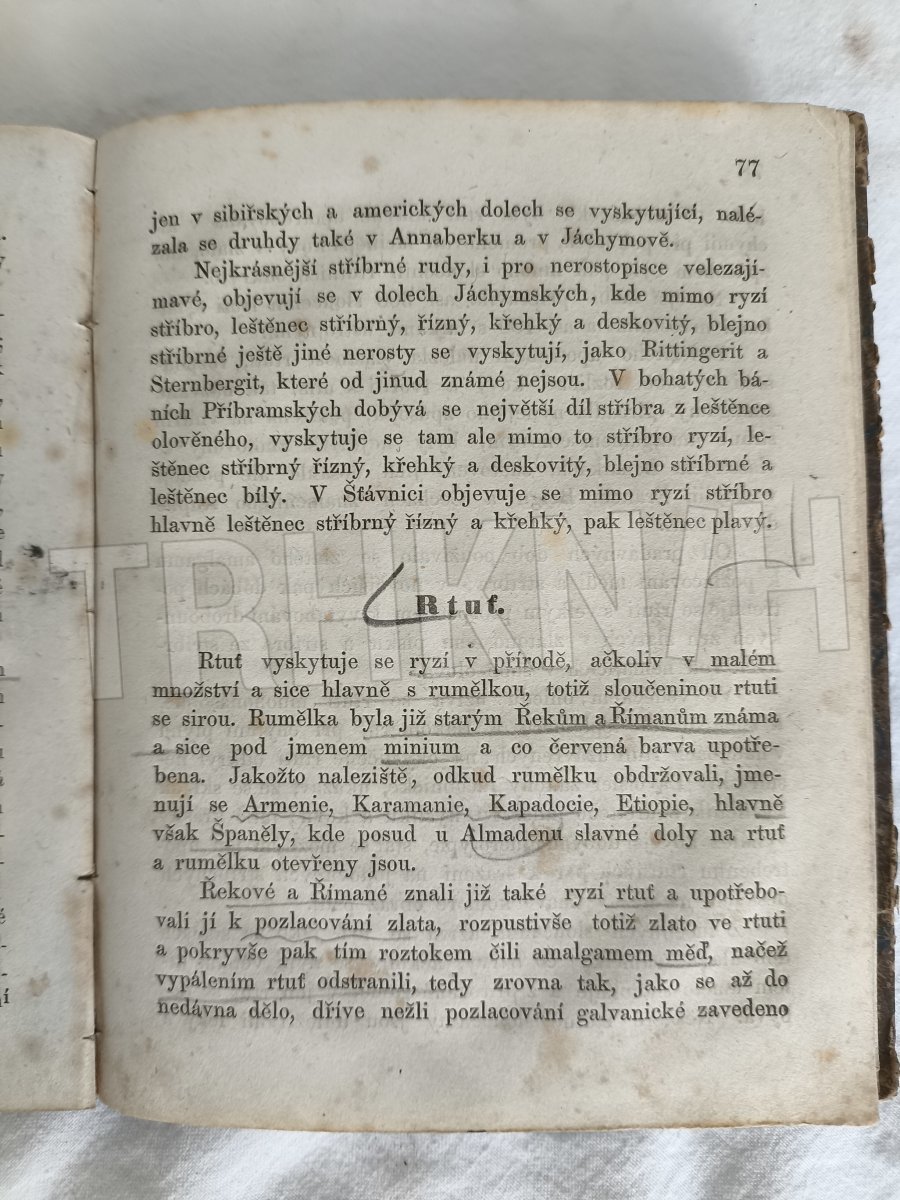 77
jen v sibiřských a amerických dolech se vyskytující, nalé-
zala se druhdy také v Annaberku a v Jáchymově.
Nejkrásnější stříbrné rudy, i pro nerostopisce velezají-
mavé, objevují se v dolech Jáchymských, kde mimo ryzí
stříbro, leštěnec stříbrný, řízný, křehký a deskovitý, blejno
stříbrné ještě jiné nerosty se vyskytují, jako Rittingerit a
Sternbergit, které od jinud známé nejsou. V bohatých bá-
ních Příbramských dobývá se největší díl stříbra z leštěnce
olověného, vyskytuje se tam ale mimo to stříbro ryzí, le-
štěnec stříbrný řízný, křehký a deskovitý, blejno stříbrné a
leštěnec bílý. V Šťávnici objevuje se mimo ryzí stříbro
hlavně leštěnec stříbrný řízný a křehký, pak leštěnec plavý.
TRHKNIH
Rtuť.
Rtuť vyskytuje se ryzí v přírodě, ačkoliv v malém
množství a sice hlavně s rumělkou, totiž sloučeninou rtuti
se sirou. Rumělka byla již starým Řekům a Římanům známa
a sice pod jmenem minium a co červená barva upotře-
bena. Jakožto naleziště, odkud rumělku obdržovali, jme-
nují se Armenie, Karamanie, Kapadocie, Etiopie, hlavně
však Španěly, kde posud u Almadenu slavné doly na rtuť
a rumělku otevřeny jsou.
Řekové a Římané znali již také ryzí rtuť a upotřebo-
vali jí k pozlacování zlata, rozpustivše totiž zlato ve rtuti
a pokryvše pak tím roztokem čili amalgamem měď, načež
vypálením rtuť odstranili, tedy zrovna tak, jako se až do
nedávna dělo, dříve nežli pozlacování galvanické zavedeno